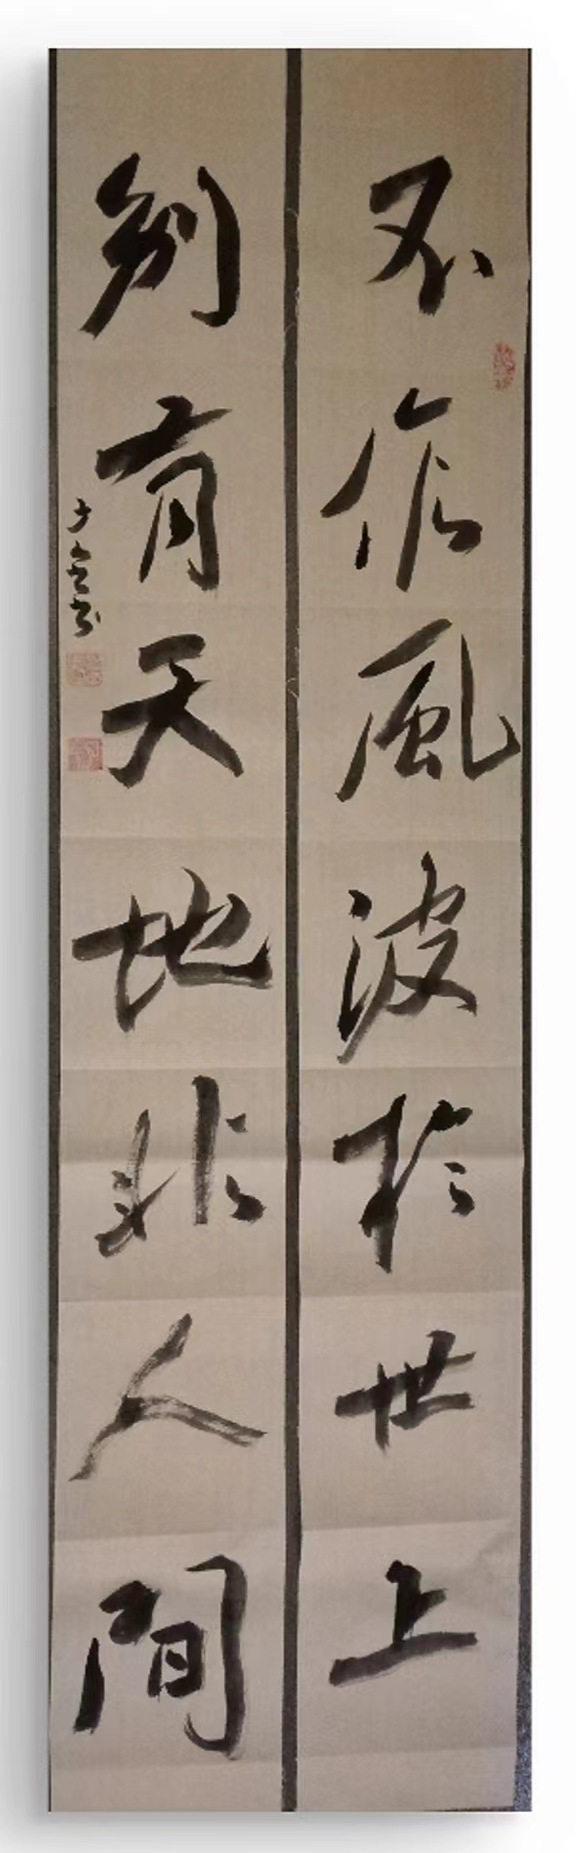 不作風波於世上
別有天地非人間